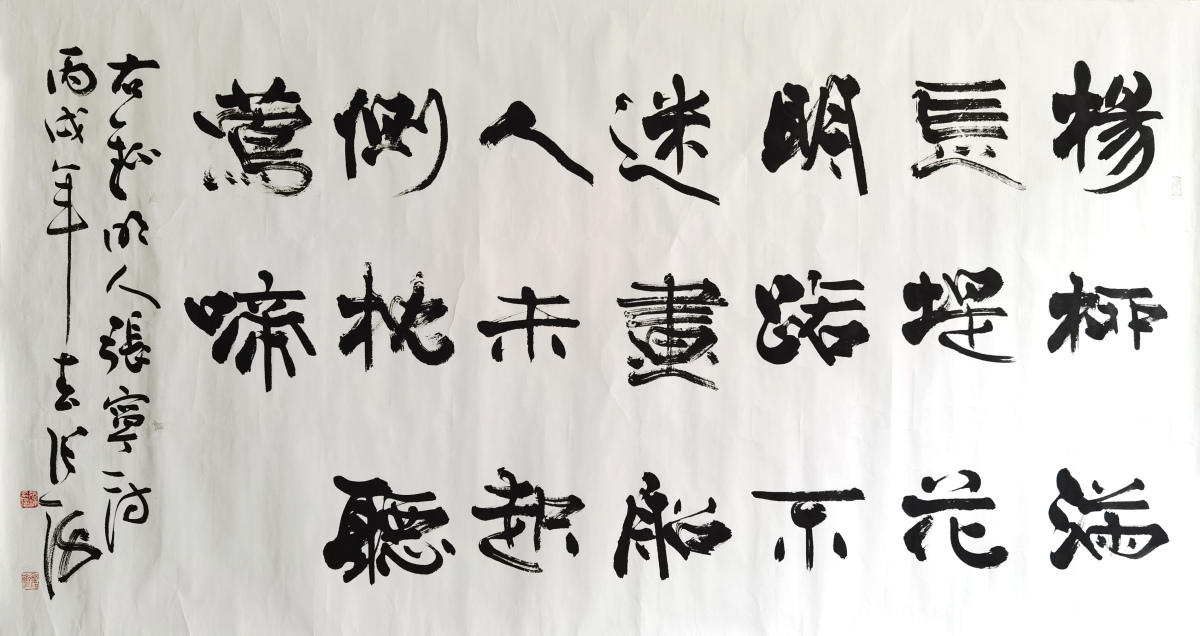 楊柳滿
長堤花
明路不
迷畫船
人未起
側枕聽
鶯啼
右明人張寧一詩
丙戌年